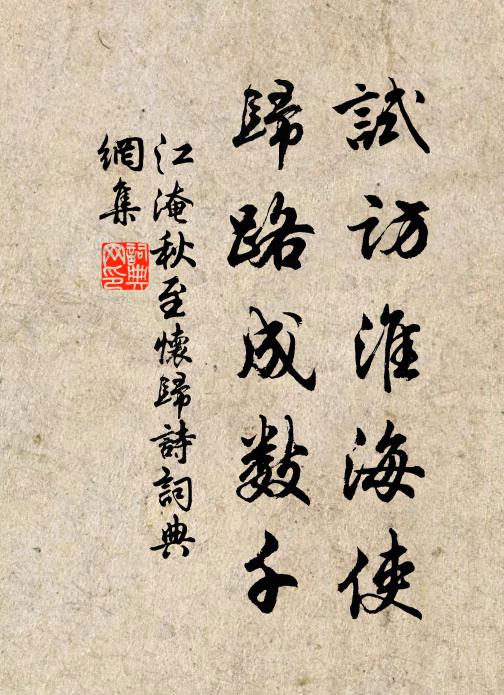 試訪淮海使
歸路成數千
江淹秋至懷歸詩詞典
網集
詞典
网印